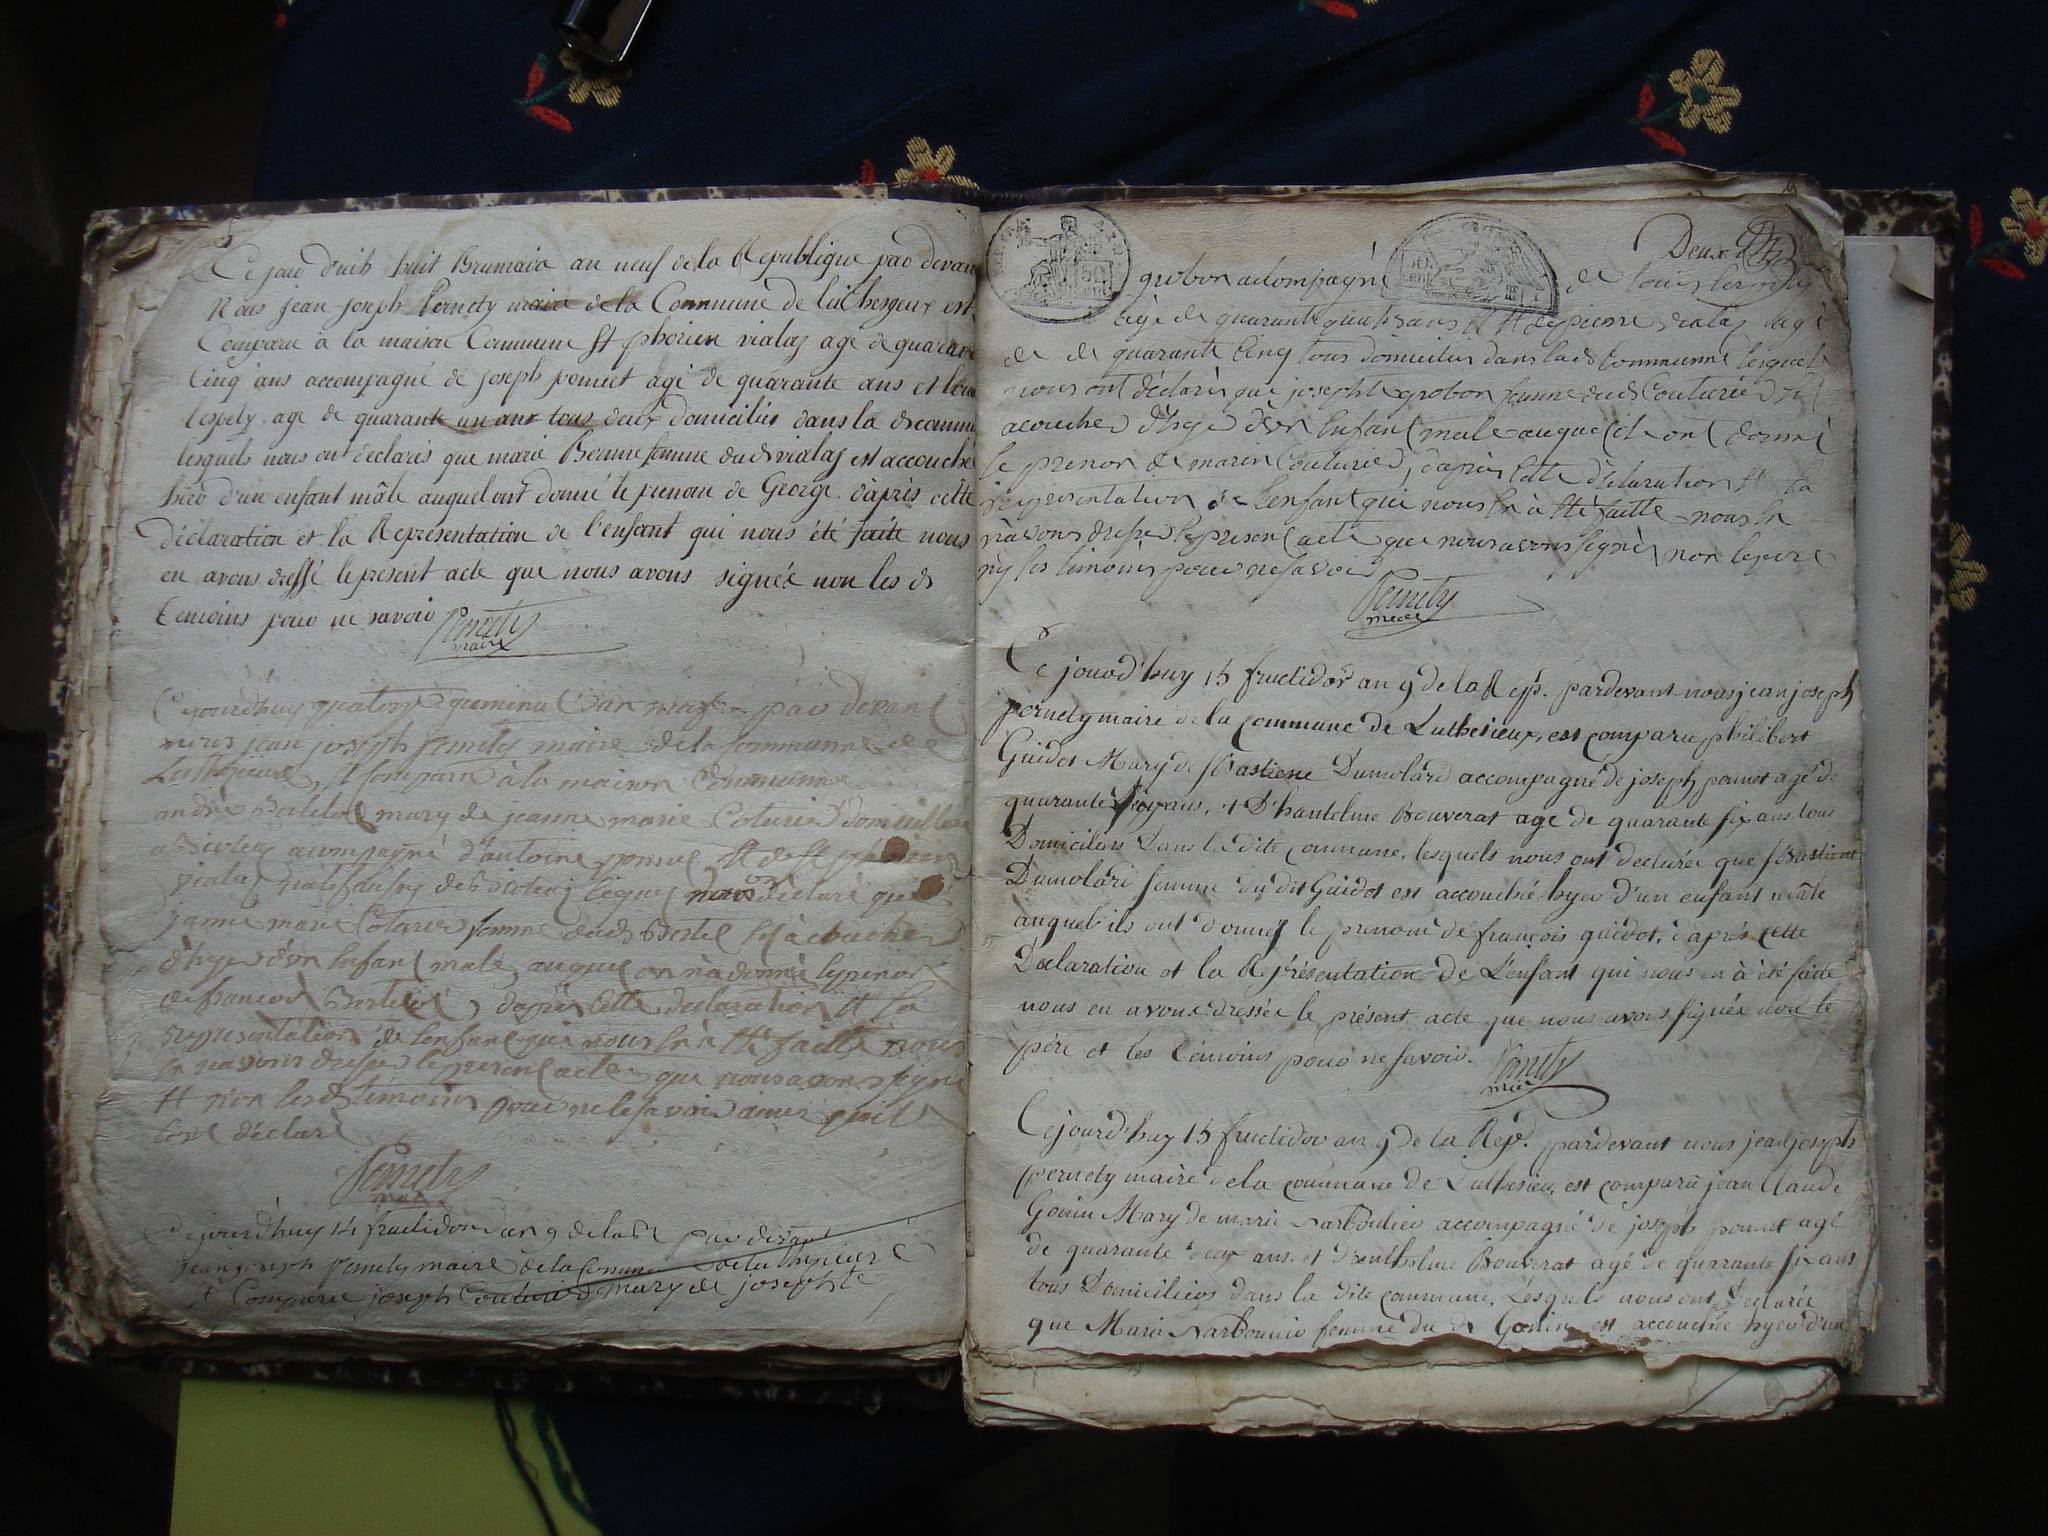 Ce jour d'uib huit Brumaire an neuf de la Republique par devan
Nous jean joseph Pernety maire de la Commune de luthesgeux est
Comparu à la maison Commune St phorien vialaz age de quarante
Cinq ans accompagné de joseph ponnet agé de quarante ans et
lespety age de quarante un ans tous deux domiciliés dans la d commune
lesquels nous on déclarés que marie femme dud vialaz est accouchée
hier d'un enfant mâle auquel ont donné le prenom de George. d'après cette
déclaration et la Représentation de l'enfant qui nous été faite nous
en avons dressé le present acte que nous avons signés non les d
temoins pour ne savoir Pernety
maire
Cejourdhuy quatorze germinal an neuf par devant
nous jean joseph pernety maire de la communne de
Luthezieux, et comparu à la maison Communne
andré Bertelot mary de jeanne marie Coturier domicilie
a acompagné d'antoine ponnet et de st phorien
vialaz de nous declaré que
janne marie Coturier femme dud Bertel est acoucher
d'hyer d'un enfant male, auquel on n'a donné le prenon
de francois Bertelot, dapres cette declaration et la
representation de lenfant qui nous en à été faitte nous
en navons dresser le present acte que nous avons signé
et non lesd temoins pour ne le savoir ainsi quil
lont déclaré
Pernety
maire
Cejourdhuy 14 fructidor an 9 de la R par devant
jean joseph Pernety maire de la Comune de luthezieux
et Comparu joseph Couturier mary de josephte
Deux
grobon acompagné de louis
agé de quarante quatre ans et de pierre vialaz agé
de de quarante cinq tous domicilies dans lad communne lesquels
nous ont déclarés que josephte grobon femme dud Couturier est
acoucher d'hyer d'un enfant male auquel ils ont donné
le prenon de marin Couturier, d'après cette déclaration et la
representation de l'enfant qui nous en à été faitte nous en
navons dresser le present acte que nous avons signés non le pere
ny les temoins pour ne savoir
Pernety
maire
Ce jourd'huy 15 fructidor an 9 de la Rep. pardevant nous jean joseph
pernety maire de la commune de Luthesieux, est comparu philibert
Guidot Mary de sbastiene Dumolard accompagné de joseph ponnet agé de
quarante ans, et D'hantelme Bouverat age de quarante six ans tous
Domiciliers Dans la dite commune, lesquels nous ont declarée que sbastiene
Dumolard femme du dit Guidot est accouché hyer d'un enfant mâle
auquel ils ont donnés le prenom de françois guidot, d'après cette
Déclaration et la Représentation de L'enfant qui nous en à été faite
nous en avons dressée le présent acte que nous avons signés non le
père et les témoins pour ne savoir. Pernety
maire
Cejourd'huy 15 fructidor an 9 de la Rep. pardevant nous jean joseph
pernety maire de la commune de Luthesieu, est comparu jean Claude
Gonin Mary de marie Narboulier accompagné de joseph ponnet agé
de quarante ans, et d'antholme Bouverat agé de quarante six ans
tous Domiciliers dans la dite commune, Lesquels nous ont Declarée
que Marie Narboulier femme du d Gonin est accouchée hyer d'un